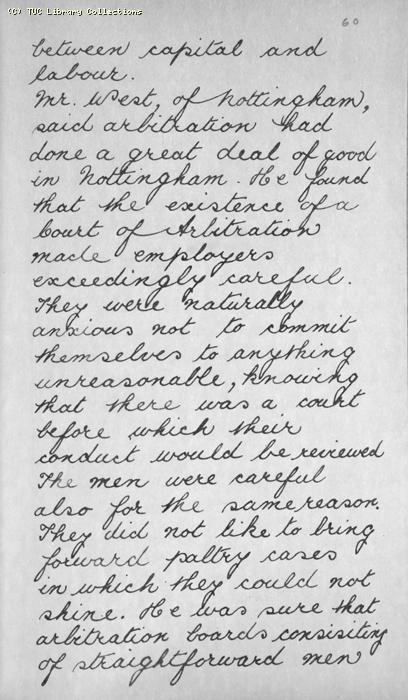 (C) TUC Library Collections
60
between capital and
labour.
Mr. West, of Nottingham,
said arbitration had
done a great deal of good
in Nottingham. He found
that the existence of a
Court of Arbitration
made employers
exceedingly careful.
They were naturally
anxious not to commit
themselves to anything
unreasonable, knowing
that there was a court
before which their
conduct would be reviewed
The men were careful
also for the same reason.
They did not like to bring
forward paltry cases
in which they could not
shine. He was sure that
arbitration boards consisiting
of straightforward men